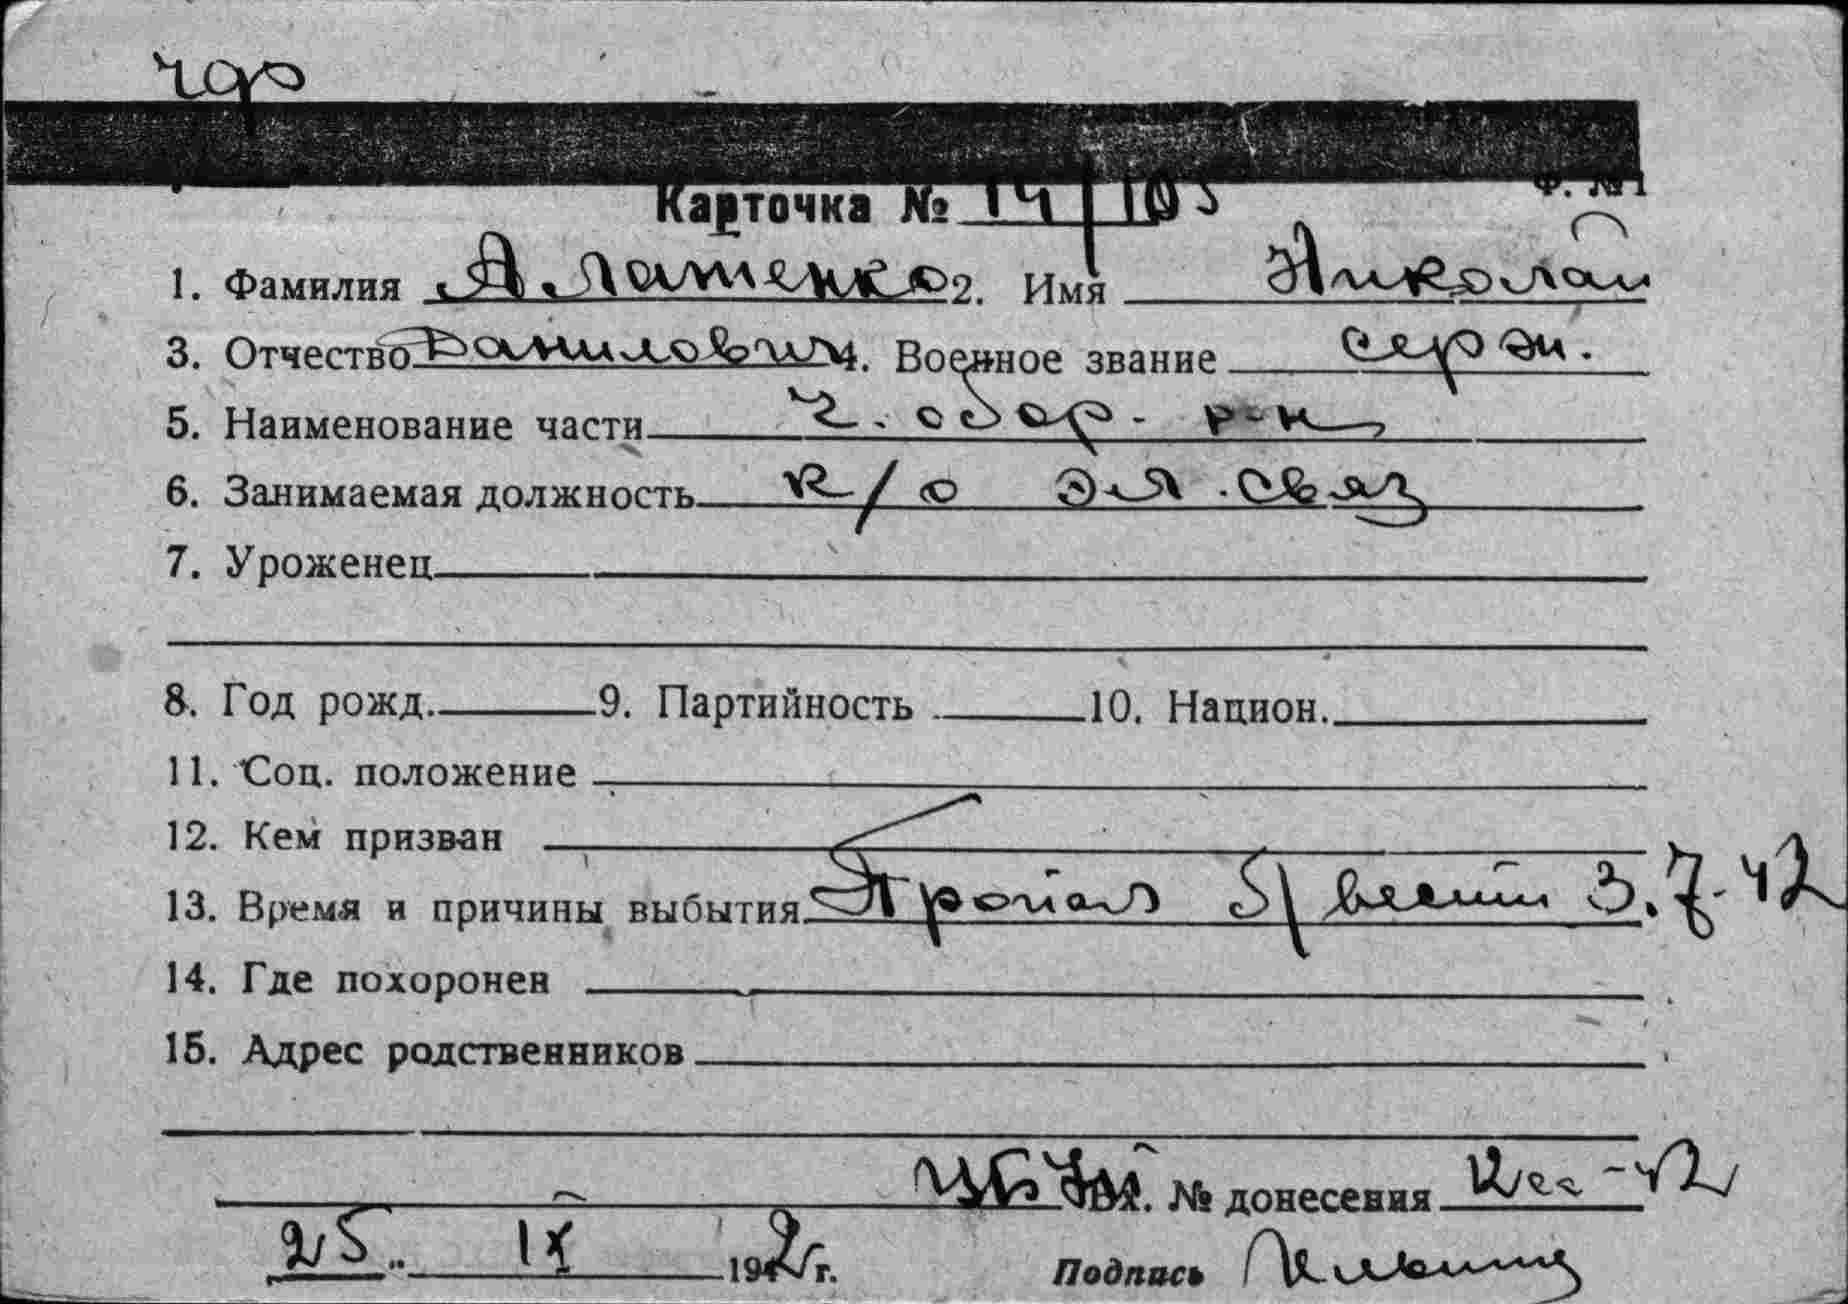 чф
Карточка № 14/105
Ф. №1
1. Фамилия Алатенко 2. Имя Николай
3. Отчество Данилович 4. Военное звание серж.
5. Наименование части Ч. обор. р-н
6. Занимаемая должность к/о Эл. связ
7. Уроженец
8. Год рожд. 9. Партийность 10. Национ.
11. Соц. положение
12. Кем призван
13. Время и причины выбытия Пропал б/вести 3.7.42
14. Где похоронен
15. Адрес родственников
Вх. № донесения 12сс-42
25. IX 1942 г. Подпись